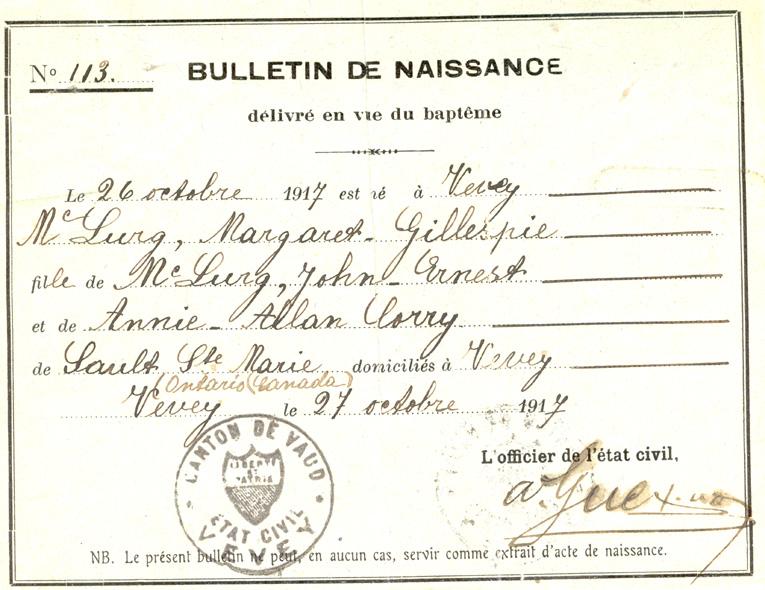 Nº 113. BULLETIN DE NAISSANCE
délivré en vue du baptême
Le 26 octobre 1917 est né à Vevey
Mc Lurg, Margaret-Gillespie
fille de Mc Lurg, John-Ernest
et de Annie-Allan Corry
de Sault, Ste Marie, domiciliés à Vevey
(Ontario (Canada)
Vevey le 27 octobre 1917
CANTON DE VAUD
LIBERTÉ
ET
PATRIE
ÉTAT CIVIL
VEVEY
L'officier de l'état civil,
NB. Le présent bulletin ne peut, en aucun cas, servir comme extrait d'acte de naissance.